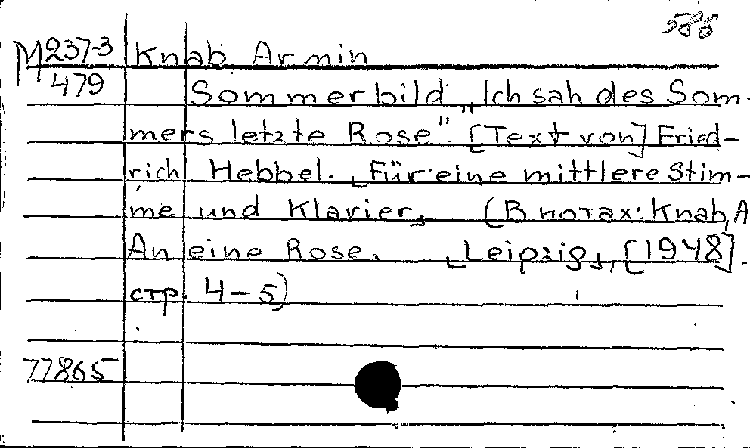 588
М 237-3 Knab Armin
479 Sommerbild „Ich sah des Som-
mers letzte Rose". [Text von] Fried-
rich Hebbel. Für eine mittlere Stim-
me und Klavier. (В нотах: Knab, A
An eine Rose. Leipzig, [1948].
стр. 4-5)
77865